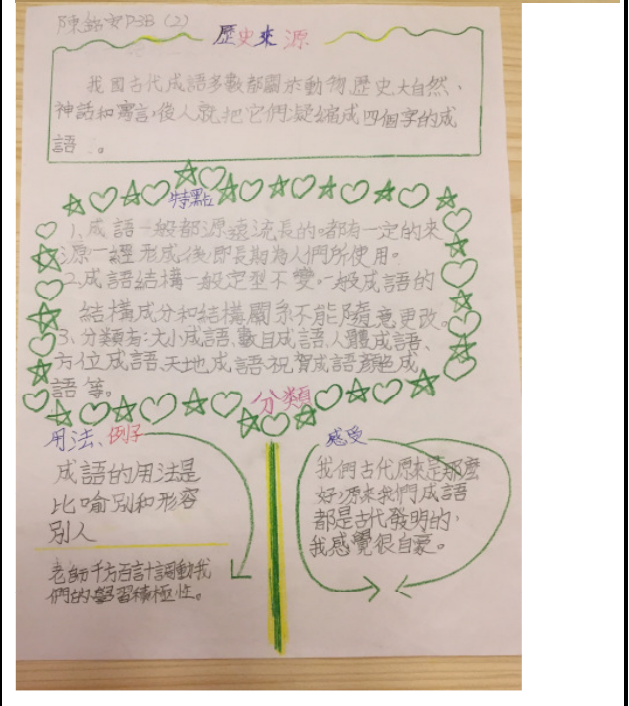 陳 P3B (2)
歷史來源
我国古代成語多數都關於動物歷史大自然、
神話和寓言,後人就把它們凝縮成四個字的成
語。
特點
1、成語一般都源遠流長的。都有一定的來
源一經形成後即長期為人們所使用。
2、成語結構一般定型不變。一般成語的
結構成分和結構關系不能隨意更改。
3、分類有:大小成語、數目成語、人體成語、
方位成語、天地成語、祝賀成語顏色成
語等。
分類
用法、例子
成語的用法是
比喻別和形容
別人
老師千方百計調動我
們的學習積極性。
感受
我們古代原來是那麼
好,源來我們成語
都是古代發明的,
我感覺很自豪。